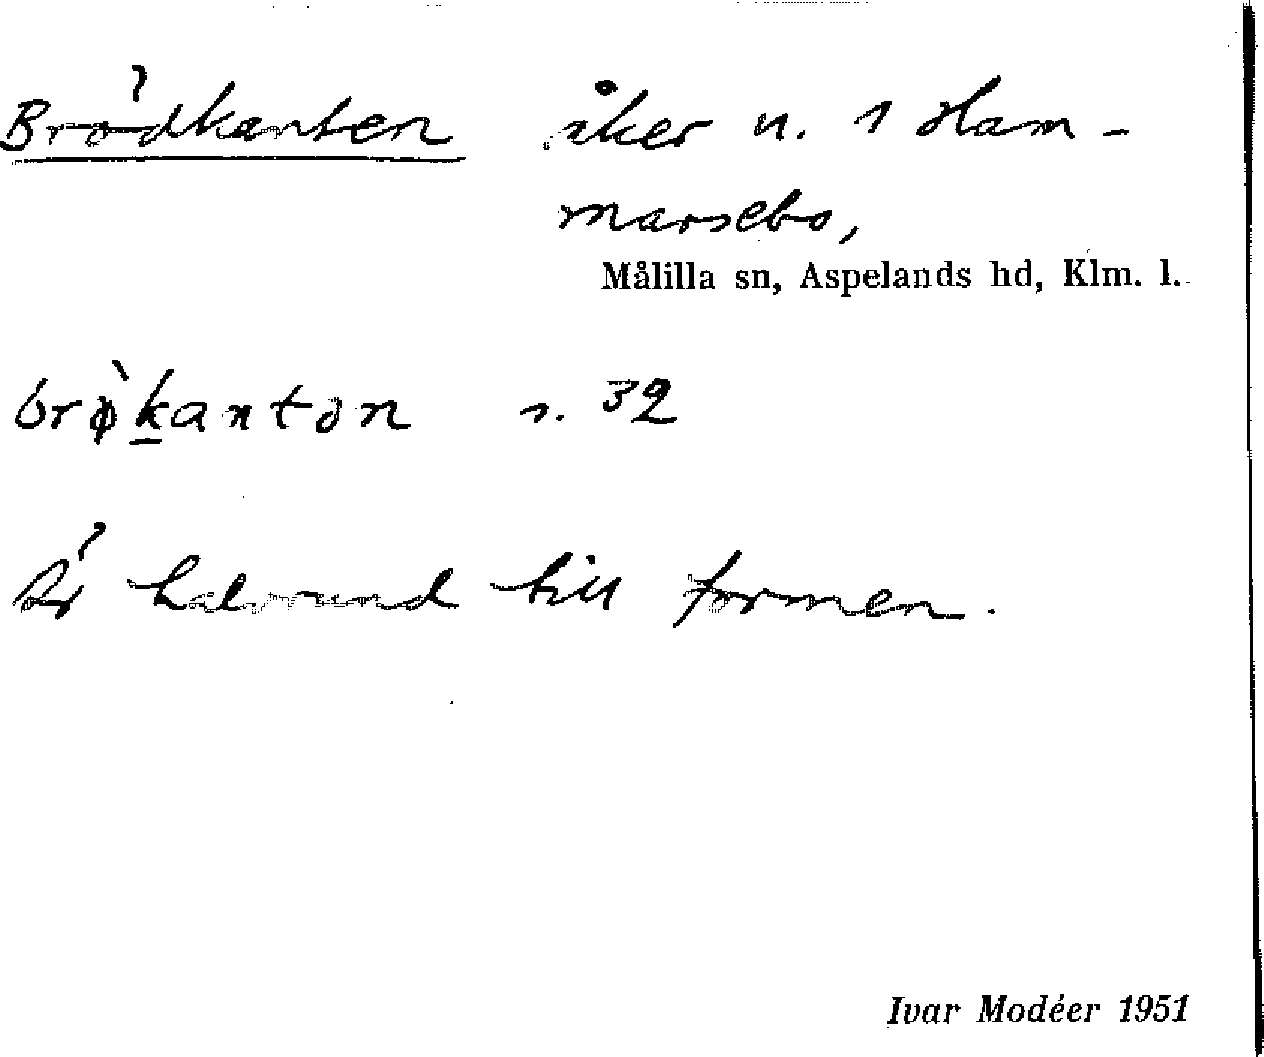 Brödkanten åker u. 1 Ham-
marsebo,
Målilla sn, Aspelands hd, Klm. l.
brø̀kantən s. 32
Är halvrund till formen.
Ivar Modéer 1951